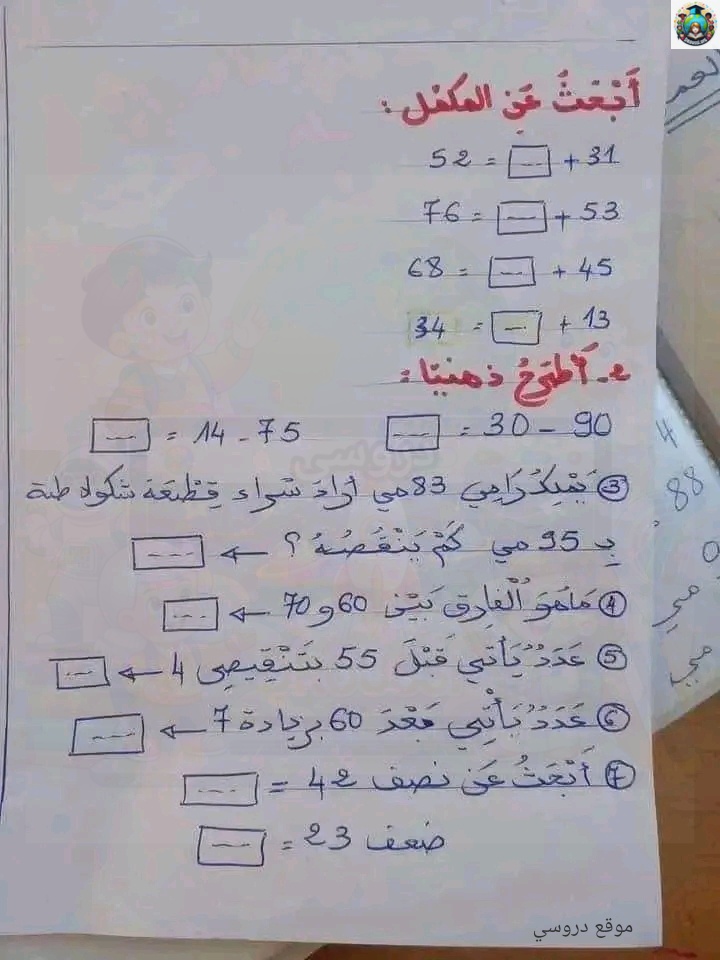 أَبْحَثُ عَنِ المكمل :
31 + [---] = 52
53 + [---] = 76
45 + [---] = 68
13 + [---] = 34
2- أَطْرَحُ ذهنيًا :
90 - 30 = [---] 75 - 14 = [---]
③ يَمْلِكُ رَامِي 83 مي أرادَ شراء قِطْعَة شكولاطة
بِ 95 مي كَمْ يَنْقُصُهُ ؟ ← [---]
④ مَا هُوَ الْفَارِق بَيْنَ 60 و 70 ← [---]
⑤ عَدَدٌ يَأتِي قَبْلَ 55 بتَنْقِيصِ 4 ← [---]
⑥ عَدَدٌ يَأْتِي بَعْدَ 60 بزيادة 7 ← [---]
⑦ أَبْحَثُ عَن نصف 42 = [---]
ضعف 23 = [---]
دروسي
موقع دروسي
88
مي
مي